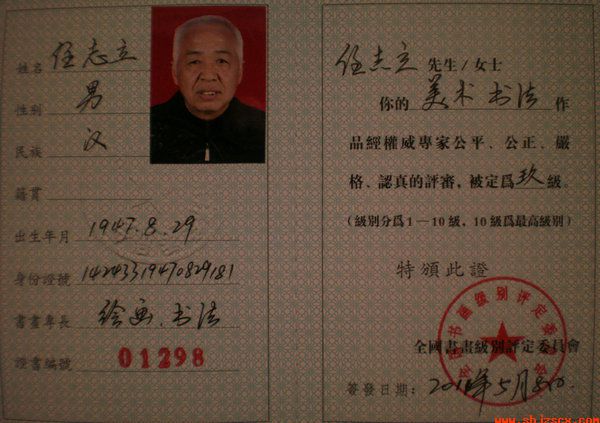 姓名 任志立
性别 男
民族 汉
籍貫
出生年月 1947.8.29
身份證號
書畫專長 绘画、书法
證書編號 01298
任志立 先生/女士
你的 美术 书法 作
品經權威專家公平、公正、嚴
格、認真的評審，被定爲玖級。
（級别分爲1—10級，10級爲最高級别）
特頒此證
全國書畫級别評定委員會
簽發日期：
www.sbjzscx.com